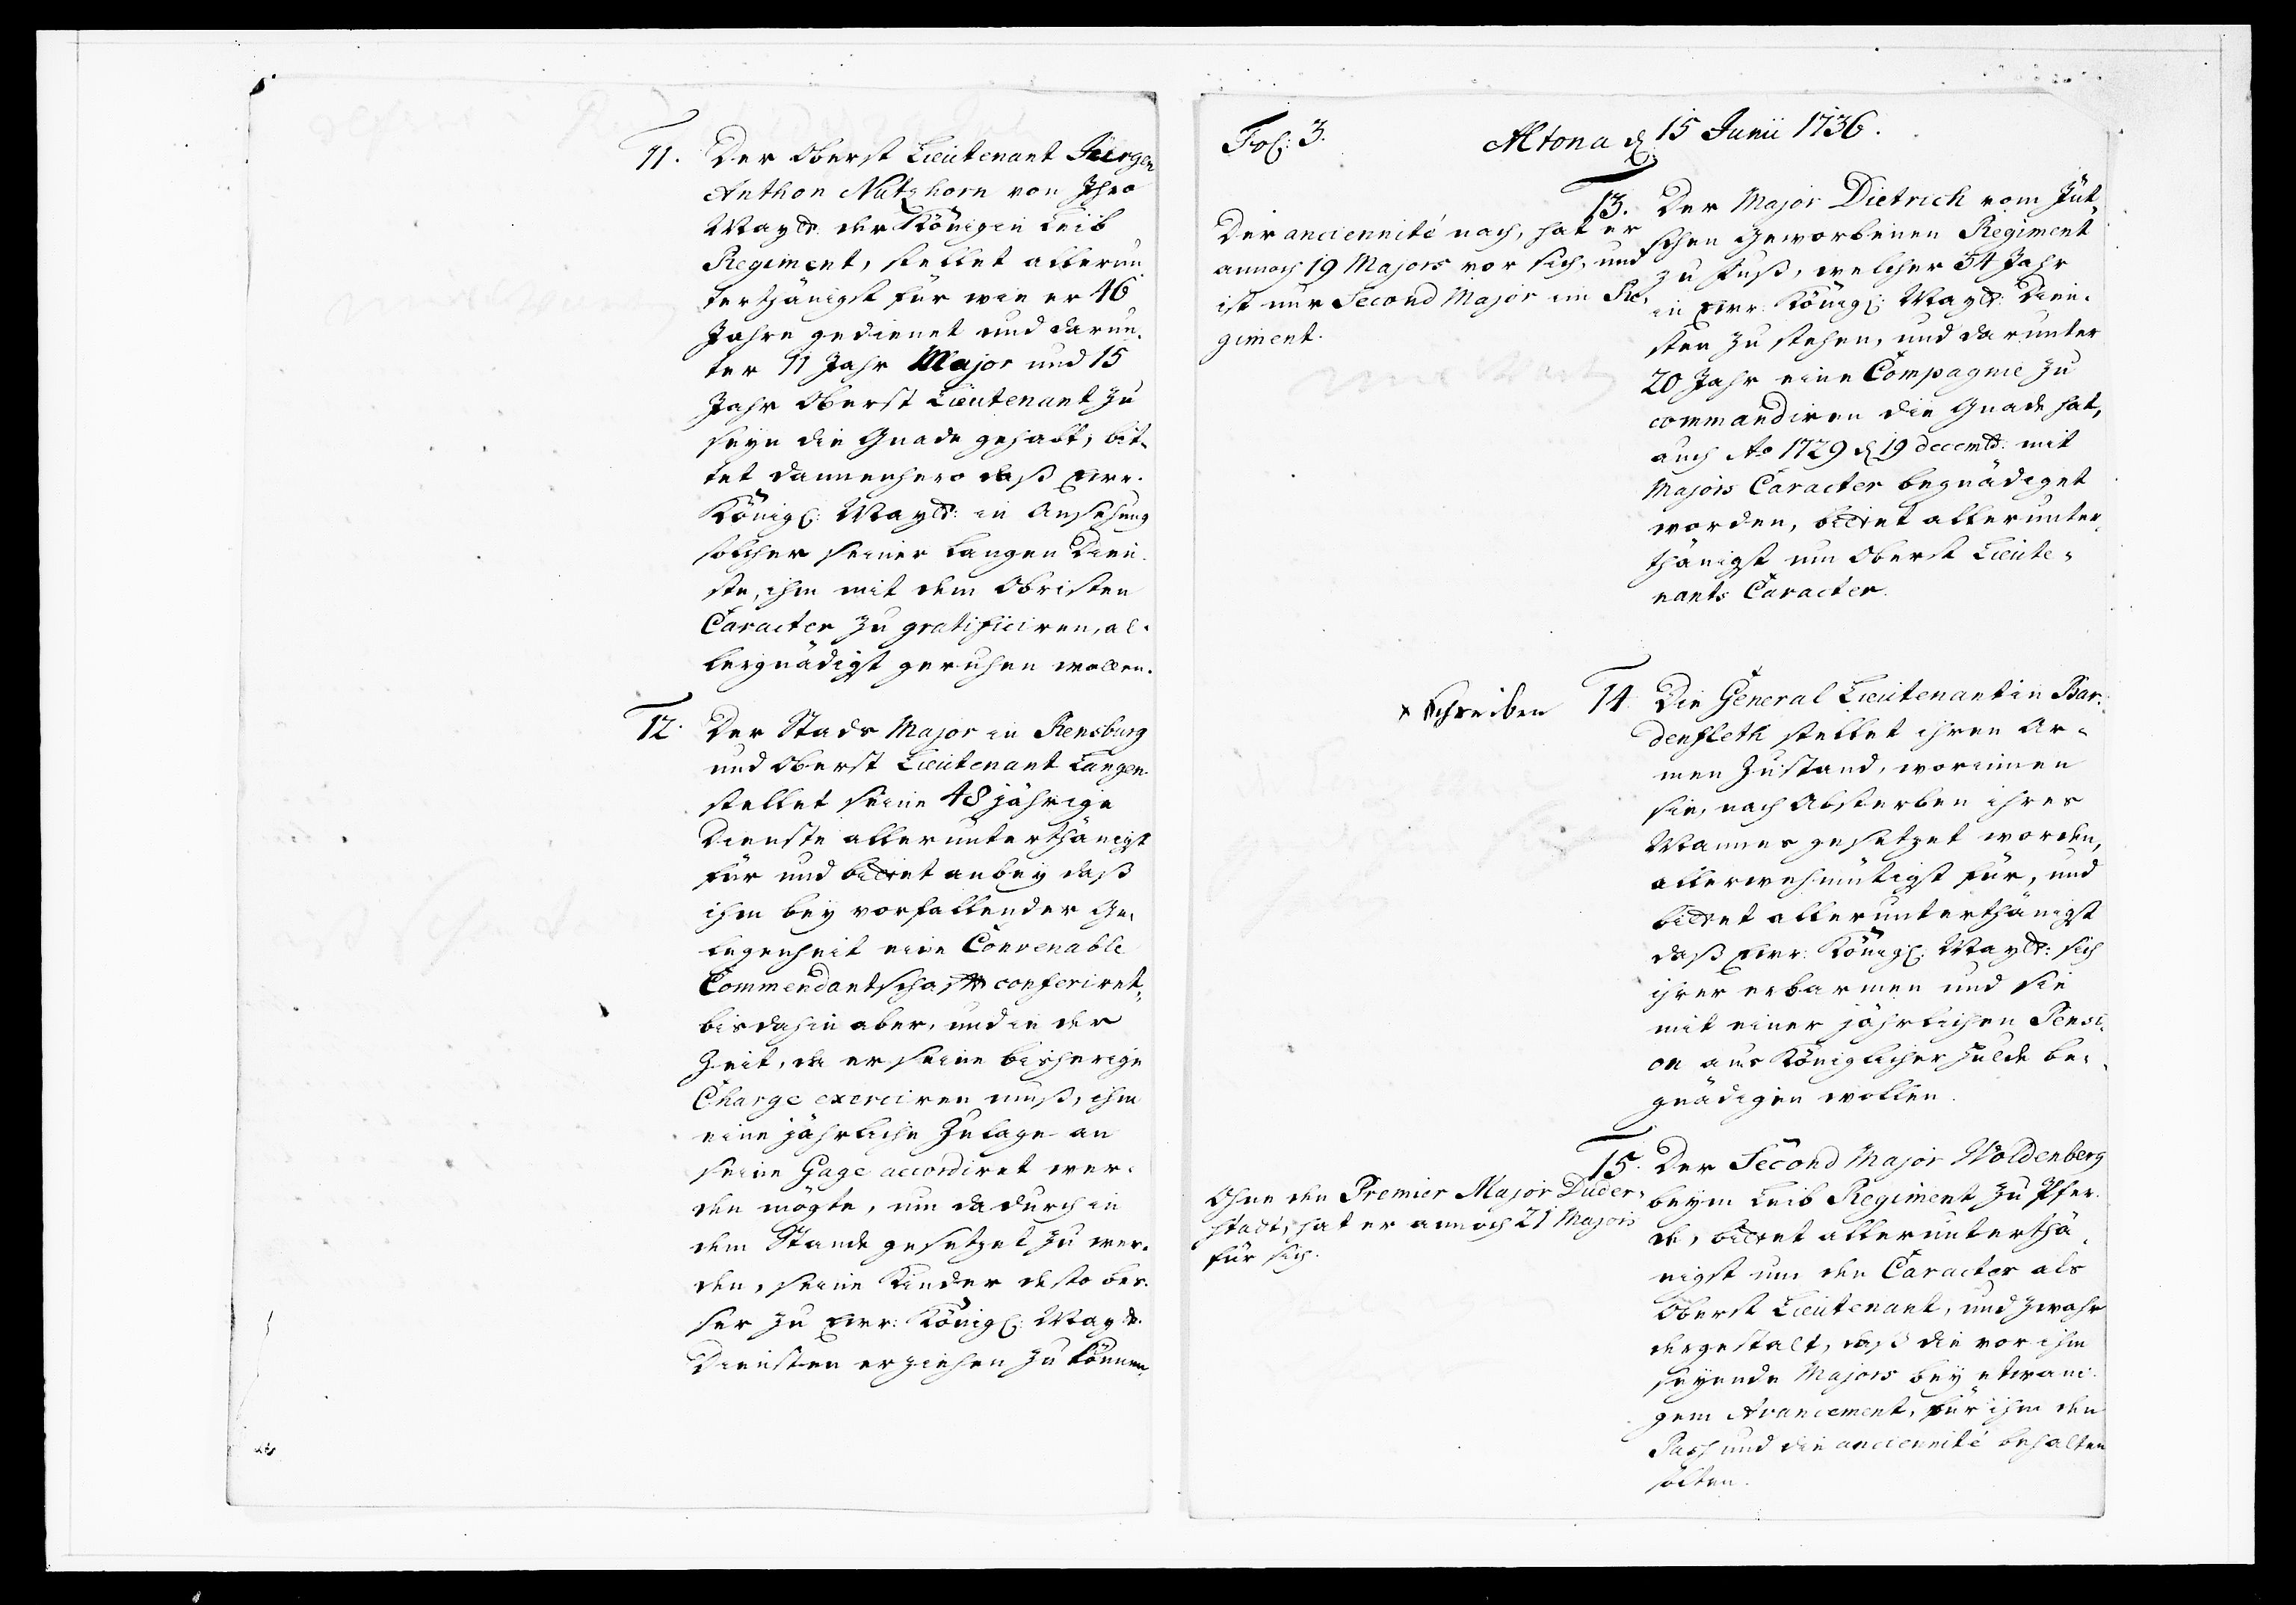 11. Der Oberst Lieutenant Jürgen
Anthon Nutzhorn von Ihro
Maytt. der Königin Leib
Regiment, stellet allerun
terthänigst für wie er 46
Jahre gedienet und darun¬
ter 11 Jahr Major und 15
Jahr Oberst Lieutenant zu
seyn die Gnade gehabt, bit¬
tet dannenhero daß Ewr.
Königl: Maytt: in Ansehung
solcher seiner langen Dien
ste, ihm mit dem Obristen
Caracter zu gratificiren, al¬
lergnädigst geruhen wollen.
12. Der Stads Major in Rensburg
und Oberst Lieutenant Langen
stellet seine 48 jährige
Dienste allerunterthänigst
für und bittet anbey daß
ihm bey vorfallender Ge¬
legenheit eine Convenable
Commendantschafft conferiret,
bis dahin aber, und in der
Zeit, da er seine bisherige
Charge exerciren muß, ihm
eine jährliche Zulage an
seine Gage accordiret wer¬
den mögte, um dadurch in
dem Stande gesetzet zu wer¬
den, seine Kinder desto bes¬
ser zu Ewr: Königl: Maytt.
Diensten erziehen zu können.
Fol: 3.
Altona d. 15 Junii 1736.
Der anciennité nach, hat er
annoch 19 Majors vor sich, und
ist nur Second Major im Re¬
giment.
13. Der Major Dietrich vom Jüt¬
schen geworbenen Regiment
zu Fuß, welcher 34 Jahr
in Ewr. Königl: Maytt: Dien¬
sten zu stehen, und darunter
20 Jahr eine Compagnie zu
commandiren die Gnade hat,
auch Ao 1729 d. 19 decembr. mit
Majors Caracter begnädiget
worden, bittet allerunter¬
thänigst um Oberst Lieute¬
nants Caracter.
x schreiben
14. Die General Lieutenantin Bar¬
denfleth stellet ihren Ar¬
men Zustand, worinnen
sie, nach Absterben ihres
Mannes gesetzet worden,
allerwehmütigst für, und
bittet allerunterthänigst
daß Ewr: Königl: Maytt: sich
ihrer erbarmen und sie
mit einer jährlichen Pensi¬
on aus Königlicher Hulde be¬
gnädigen wollen.
Ohne den Premier Major Duder¬
stadt, hat er annoch 21 Majors
für sich.
15. Der Second Major Woldenberg
beym Leib Regiment zu Pfer¬
de, bittet allerunterthä¬
nigst um den Caracter als
Oberst Lieutenant, und zwahr
dergestalt, daß die vor ihm
seyende Majors bey etwani¬
gem Avancement, für ihm den
Pass und die anciennité behalten
solten.